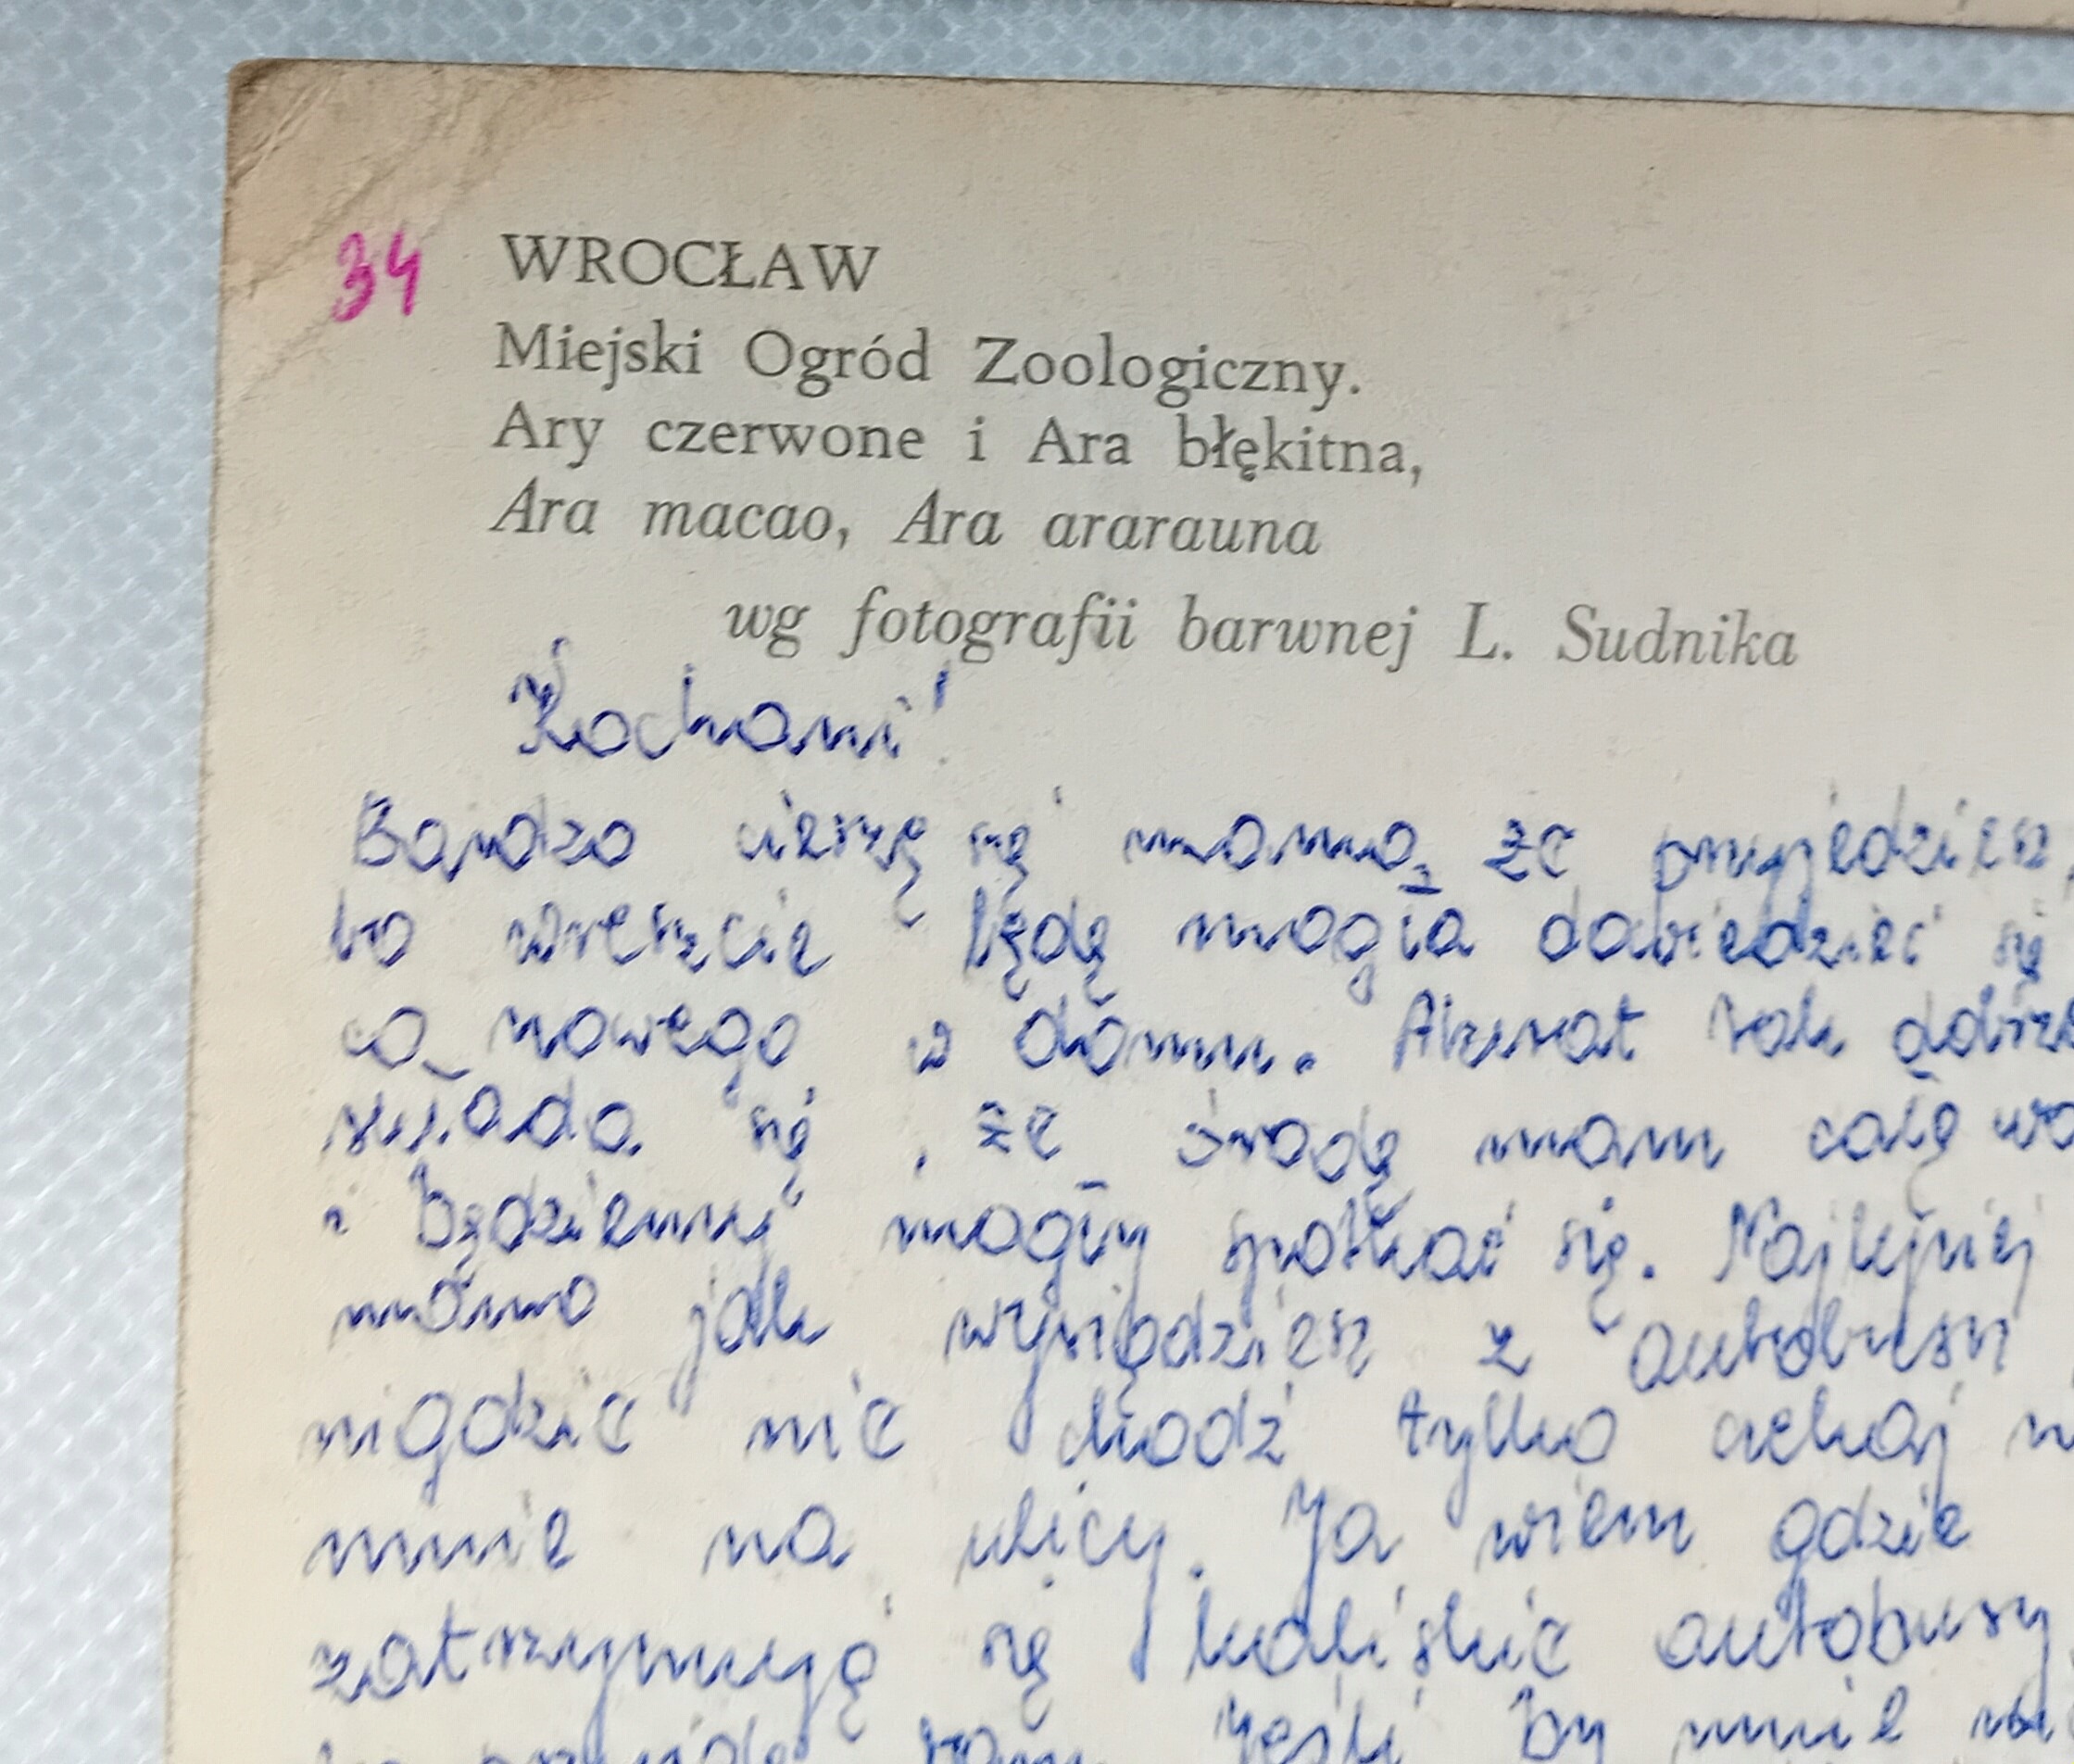 34
WROCŁAW
Miejski Ogród Zoologiczny.
Ary czerwone i Ara błękitna,
Ara macao, Ara ararauna
wg fotografii barwnej L. Sudnika
Kochani!
Bardzo cieszę się mamo, że przyjedziesz,
bo wreszcie będę mogła dowiedzieć się
co nowego w domu. Akurat tak dobrze
składa się, że środę mam całą
i będziemy mogły spotkać się. Najlepiej
mamo jak wysiądziesz z autobusu
nigdzie nie chodź tylko czekaj
mnie na ulicy. Ja wiem gdzie
zatrzymują się autobusy
przyjdę tam. Jeśli by mnie